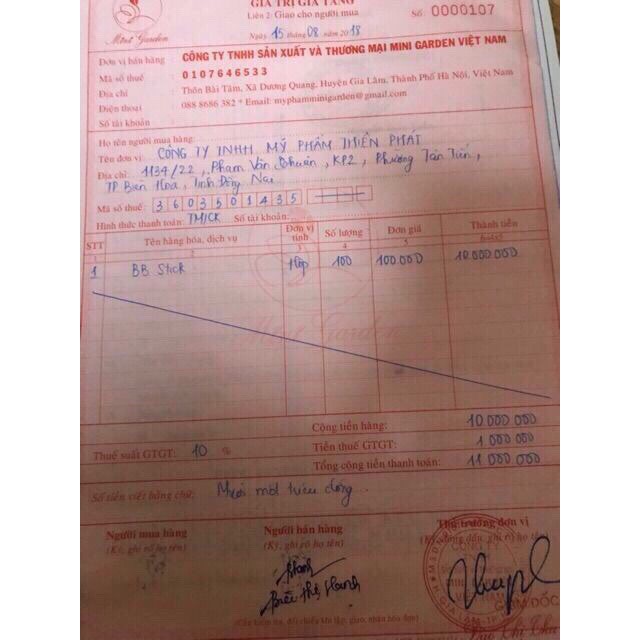 GIÁ TRỊ GIA TĂNG
Liên 2: Giao cho người mua
Số: 0000107
Ngày 15 tháng 08 năm 2018
Mint Garden
Đơn vị bán hàng: CÔNG TY TNHH SẢN XUẤT VÀ THƯƠNG MẠI MINI GARDEN VIỆT NAM
Mã số thuế : 0107646533
Địa chỉ : Thôn Bài Tâm, Xã Dương Quang, Huyện Gia Lâm, Thành Phố Hà Nội, Việt Nam
Điện thoại : 088 8686 382 * Email: myphamminigarden@gmail.com
Số tài khoản :
Họ tên người mua hàng:
Tên đơn vị: CÔNG TY TNHH MỸ PHẨM THIÊN PHÁT
Địa chỉ: 1134/22, Phạm Văn Thuận, KP2, Phường Tân Tiến,
TP Biên Hòa, Tỉnh Đồng Nai
Mã số thuế: 3603501435
Hình thức thanh toán: TM/CK Số tài khoản:
STT Tên hàng hóa, dịch vụ Đơn vị tính Số lượng Đơn giá Thành tiền
1 2 3 4 5 6=4x5
1 BB Stick Hộp 100 100.000 10.000.000
Mint Garden
Cộng tiền hàng: 10 000 000
Thuế suất GTGT: 10 % Tiền thuế GTGT: 1 000 000
Tổng cộng tiền thanh toán: 11 000 000
Số tiền viết bằng chữ: Mười một triệu đồng
Người mua hàng Người bán hàng Thủ trưởng đơn vị
(Ký, ghi rõ họ tên) (Ký, ghi rõ họ tên) (Ký, đóng dấu, ghi rõ họ tên)
CÔNG TY
VIỆT NAM
GIÁM ĐỐC
(Cần kiểm tra, đối chiếu khi lập, giao, nhận hóa đơn)